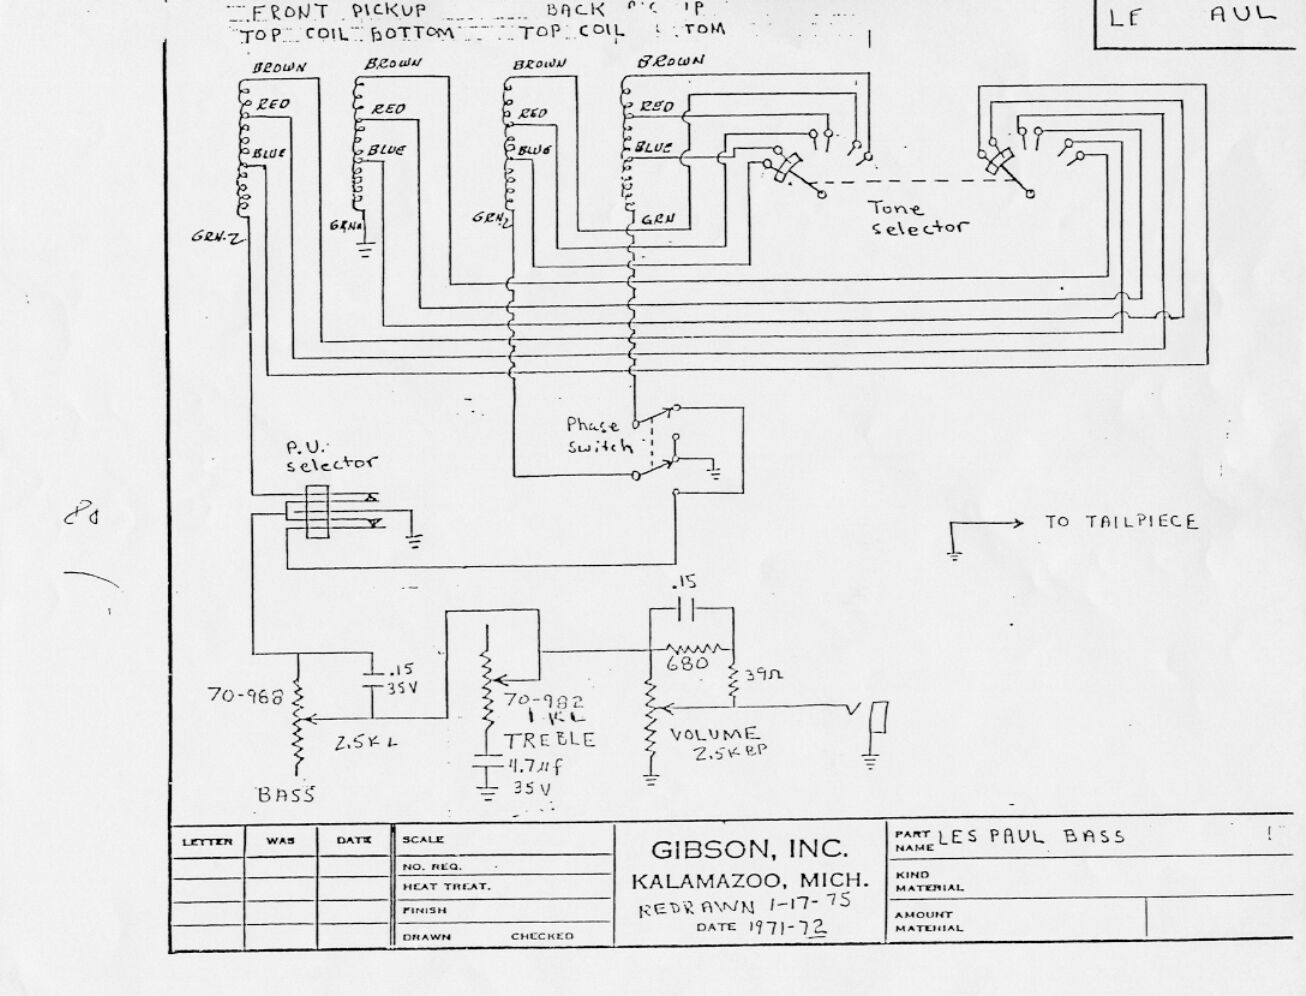 FRONT PICKUP BACK
TOP COIL BOTTOM TOP COIL
LE AUL
BROWN
BROWN
BROWN
BROWN
RED
RED
RED
RED
BLUE
BLUE
BLUE
BLUE
GRN
Tone
selector
Phase
switch
P.U.
selector
TO TAILPIECE
.15
680
39Ω
.15
35V
70-968
2.5K L
BASS
70-982
1 KL
TREBLE
4.7µf
35V
VOLUME
2.5K BP
LETTER WAS DATE
SCALE
NO. REQ.
HEAT TREAT.
FINISH
DRAWN CHECKED
GIBSON, INC.
KALAMAZOO, MICH.
REDRAWN 1-17-75
DATE 1971-72
PART
NAME LES PAUL BASS
KIND
MATERIAL
AMOUNT
MATERIAL